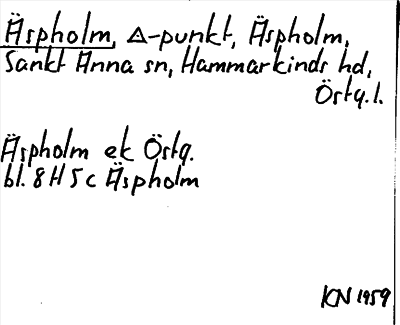 Äspholm, △-punkt, Äspholm,
Sankt Anna sn, Hammarkinds hd,
Östg.l.
Äspholm ek Östg.
bl. 8 H 5 c Äspholm
KN 1959